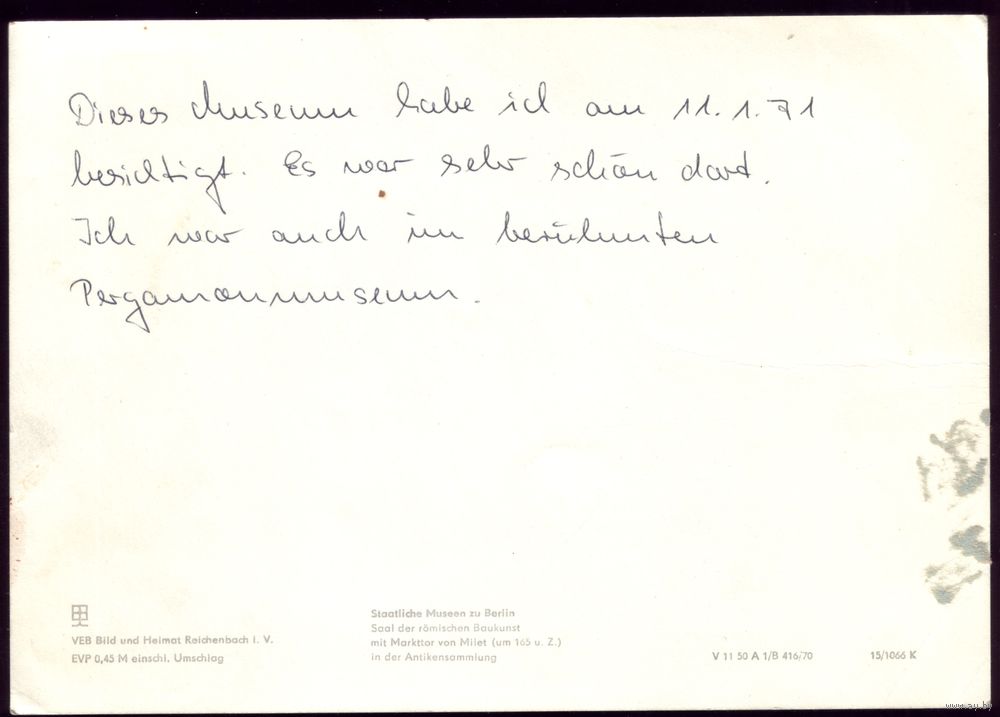 Dieses Museum habe ich am 11.1.71
besichtigt. Es war sehr schön dort.
Ich war auch im berühmten
Pergamonmuseum.
VEB Bild und Heimat Reichenbach i. V.
EVP 0,45 M einschl. Umschlag
Staatliche Museen zu Berlin
Saal der römischen Baukunst
mit Markttor von Milet (um 165 u. Z.)
in der Antikensammlung
V 11 50 A 1/B 416/70
15/1066 K
www.ay.by